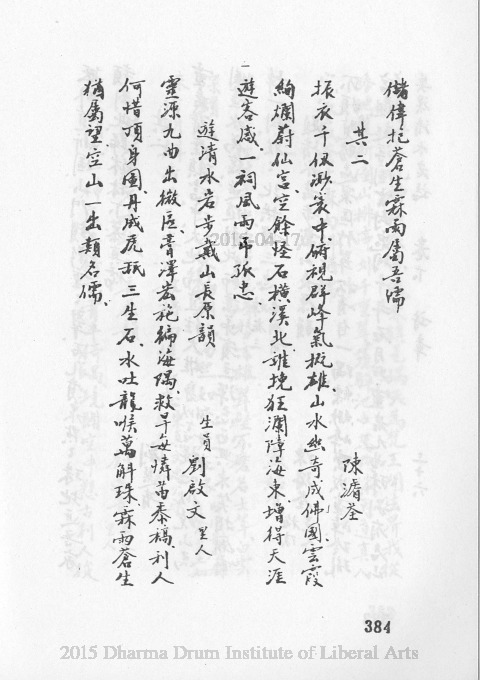 儲偉抱蒼生霖雨屬吾儒
其二
陳濬荃
振衣千仞渺衷中、俯視群峰氣概雄、山水幽奇成佛國、雲霞
絢爛蔚仙宮、空餘怪石橫溪北、誰挽狂瀾障海東、增得天涯
遊客感、一祠風雨弔孤忠、
遊清水岩步戴山長原韻
生員 劉啟文 里人
靈源九曲出微區、膏澤宏施徧海隅、救旱每憐苗黍槁、利人
何惜頂身圓、丹成虎 三生石、水吐龍喉萬斛珠、霖雨蒼生
猶屬望、空山一出類名儒、
384
2015-04-17
2015 Dharma Drum Institute of Liberal Arts